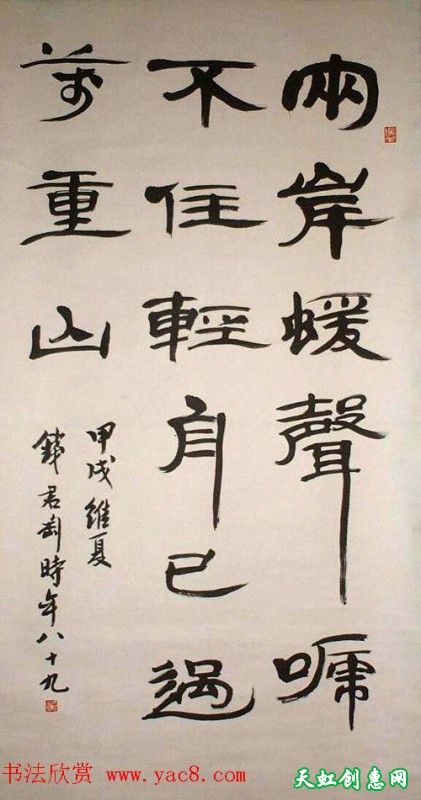 兩岸蝯聲嗁
不住輕舟已過
萬重山
甲戌維夏
錢君匋時年八十九
书法欣赏 www.yac8.com
天虹创惠网